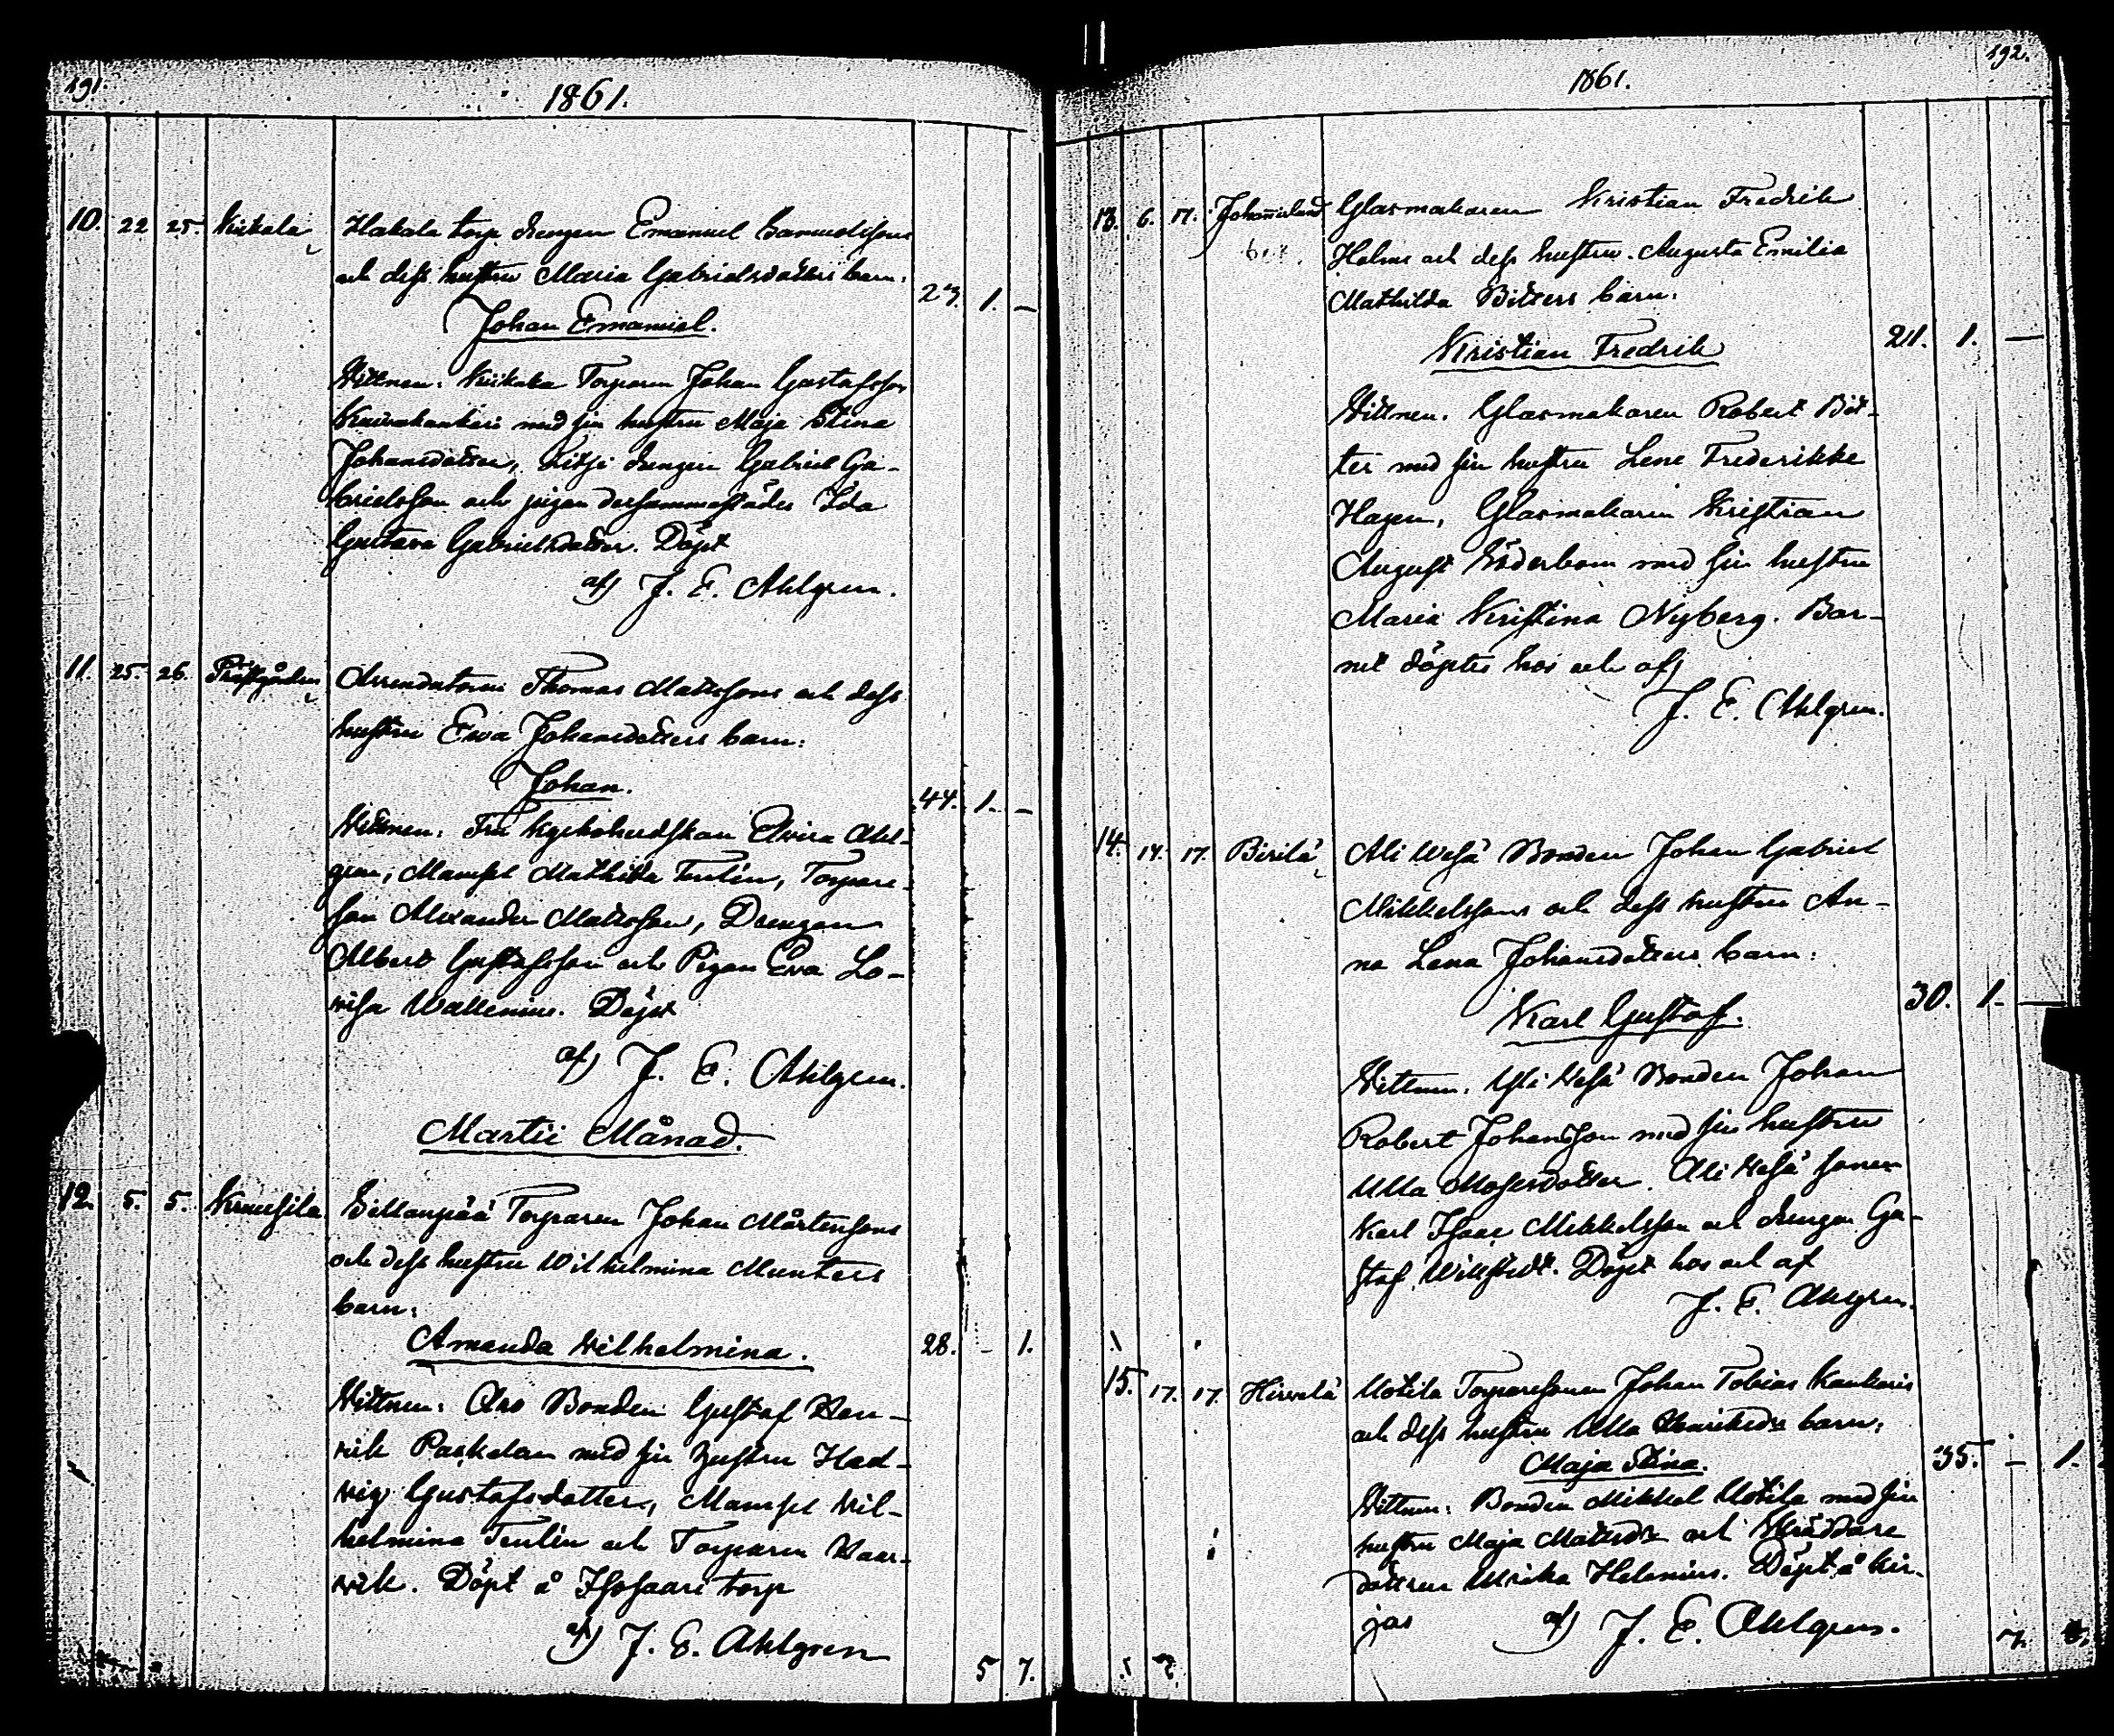 191.
1861.
10. 22 25. Kiikala Hakala torp drengen Emanuel Samuelssons
och dess hustru Maria Gabrielsdotters barn.
Johan Emanuel.
23. 1. —
Vittnen: Kiikala Torparen Johan Gustafsson
med sin hustru Maja Stina
Johansdotter, drengen Gabriel Ga-
brielsson och pigan dersammastädes Ida
Gustava Gabrielsdotter. Döpt
af J. E. Ahlgren.
11. 25. 26. Prestgården Arrendatorn Thomas Mattssons och dess
hustru Ewa Johansdotters barn:
Johan.
44. 1. —
Vittnen: Fru Kyrkoherdskan Elvira Ahl-
gren, Mamsel Mathilda Tenlin, Torpare-
son Alexander Mattsson, Drengen
Albert Gustafsson och Pigan Eva Lo-
visa Wallenius. Döpt
af J. E. Ahlgren.
Martii Månad.
12. 5. 5. Torparen Johan Mårtenssons
och dess hustru Wilhelmina Munters
barn:
Amanda Vilhelmina.
28. — 1.
Vittnen: Bonden Gustaf Hen-
rik med sin hustru Hed-
vig Gustafsdotter, Mamsel Vil-
helmina Tenlin och Torparen
Döpt å Isosaari torp
af J. E. Ahlgren
5 7.
192.
1861.
13. 6. 17. Johannislund Glasmakaren Kristian Fredrik
Holms och dess hustru Augusta Emilia
Mathilda Bitters barn:
Kristian Fredrik
21. 1. —
Vittnen. Glasmakaren Robert Bit-
ter med sin hustru Lene Frederikke
Hagen, Glasmakaren Kristian
August Söderbom med sin hustru
Maria Kristina Nyberg. Bar-
net döptes hos och af
J. E. Ahlgren.
14. 14. 17. Pirilä Ali Wesä Bonden Johan Gabriel
Mikkelssons och dess hustru An-
na Lena Johansdotters barn:
Karl Gustaf.
30. 1. —
Vittnen. Yli Vesä Bonden Johan
Robert Johansson med sin hustru
Ulla Mosesdotter. Ali Vesä sonen
Karl Isaac Mikkelsson och drengen Gu-
staf Döpt hos och af
J. E. Ahlgren.
15. 17. 17. Hirvelä Uotila Torparesonen Johan Tobias Kankaris
och dess hustru Ulla Henriksdr barn:
Maja Stina.
35. — 1.
Vittnen: Bonden Mikkel Uotila med sin
hustru Maja Mattsdr och Skräddare
dottren Ulrika Helenius. Döpt å Kir-
jas af J. E. Ahlgren.
5 7
7.